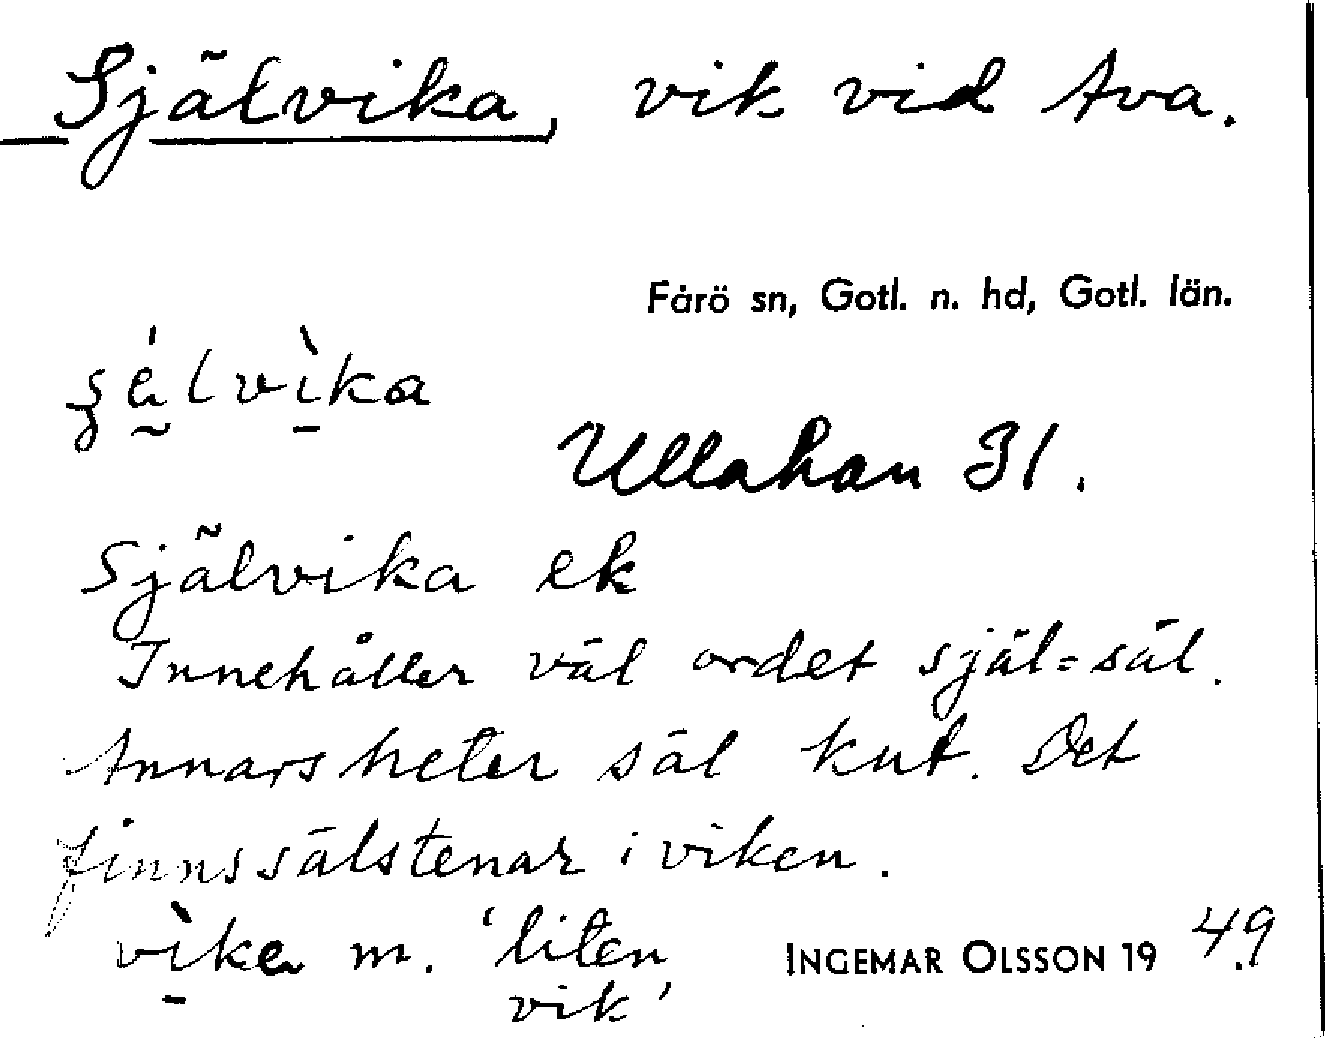 Självika, vik vid Ava.
Fårö sn, Gotl. n. hd, Gotl. län.
Ullahau 31.
Självika ek
Innehåller väl ordet själ = säl.
Annars heter säl kut. Det
finns sälstenar i viken.
m. 'liten
vik'
INGEMAR OLSSON 19 49